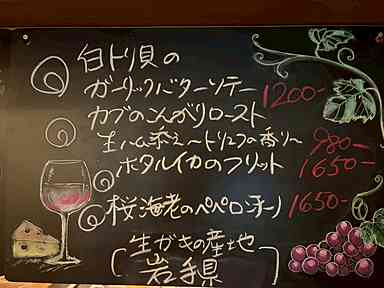 白トリ貝の
ガーリックバターソテー 1200-
カブのこんがりロースト
生ハム添え〜トリュフの香り〜 980-
ホタルイカのフリット 1650-
桜海老のペペロンチーノ 1650-
生がきの産地
岩手県